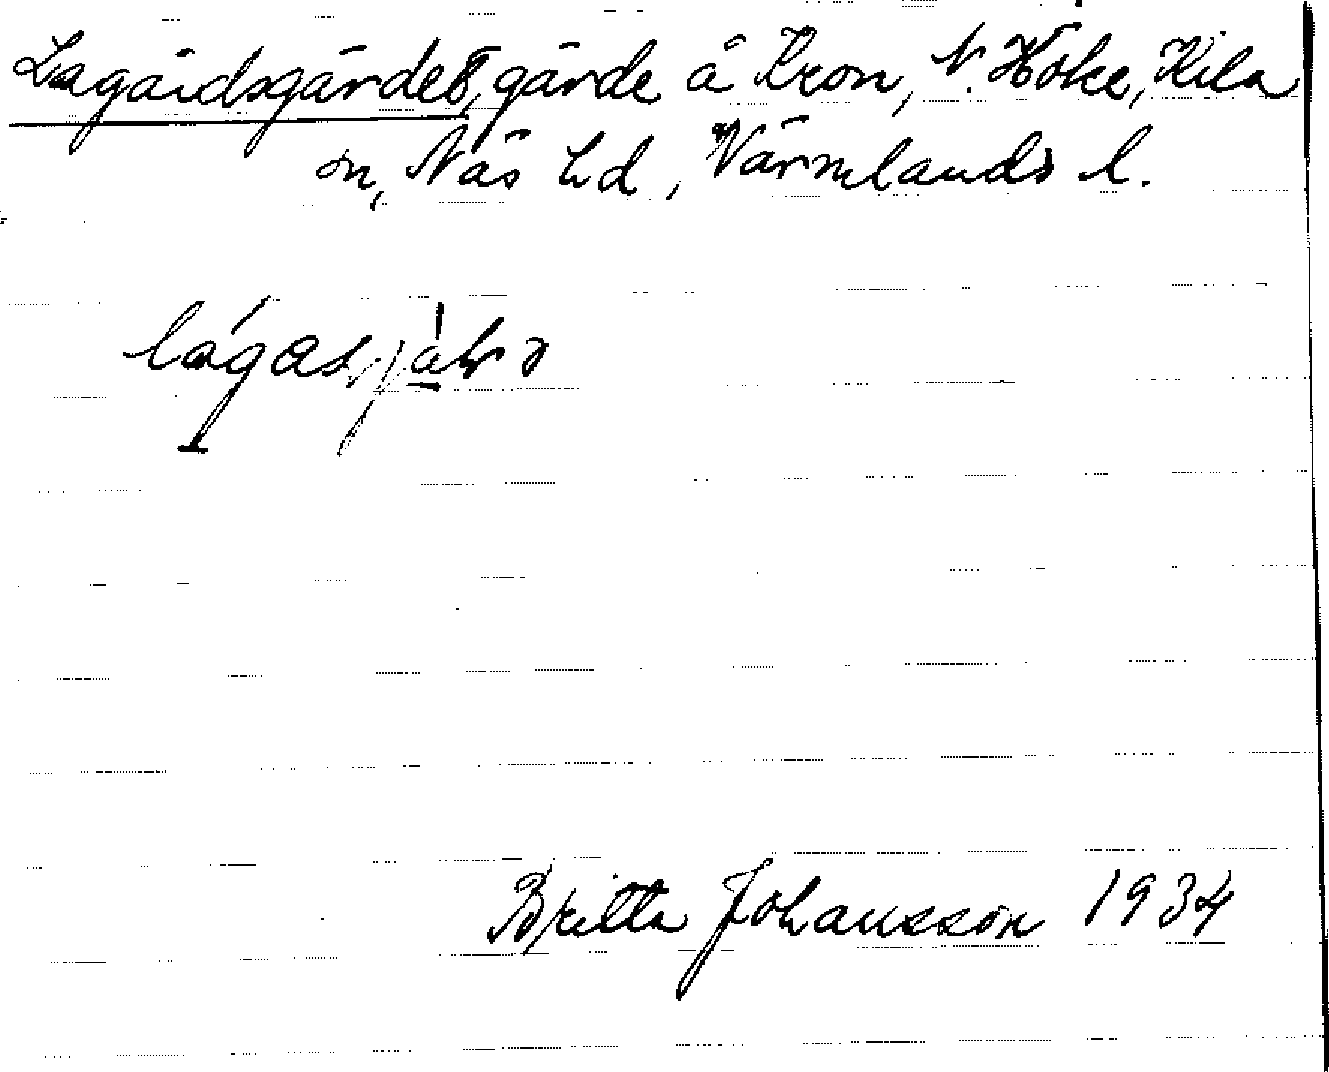 Lagårdsgärdet, gärde å Kron, N. Höke, Kila
sn, Näs hd, Värmlands l.
Britta Johansson 1934